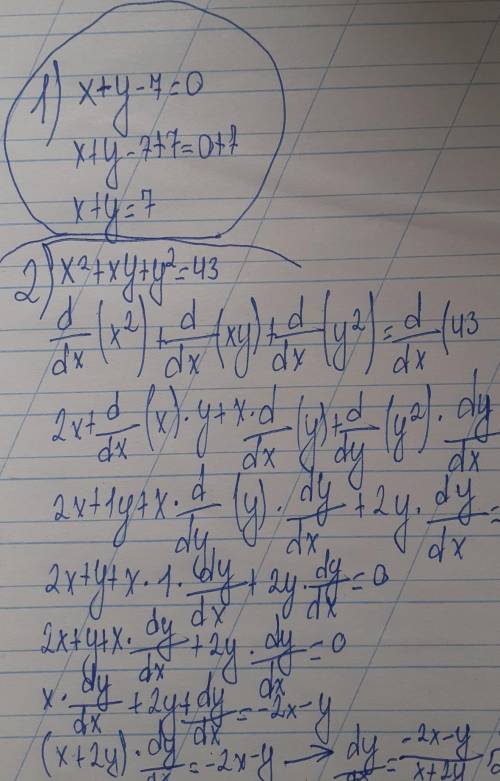 1) x+y-7=0
x+y-7+7=0+7
x+y=7
2) x²+xy+y²=43
d/dx (x²)+d/dx (xy)+d/dx (y²)=d/dx (43
2x+d/dx (x)·y+x·d/dx (y)+d/dy (y²)·dy/dx
2x+1y+x·d/dy (y)·dy/dx+2y·dy/dx=
2x+y+x·1·dy/dx+2y·dy/dx=0
2x+y+x·dy/dx+2y·dy/dx=0
x·dy/dx+2y+dy/dx=-2x-y
(x+2y)·dy/dx=-2x-y → dy/dx=-2x-y/x+2y